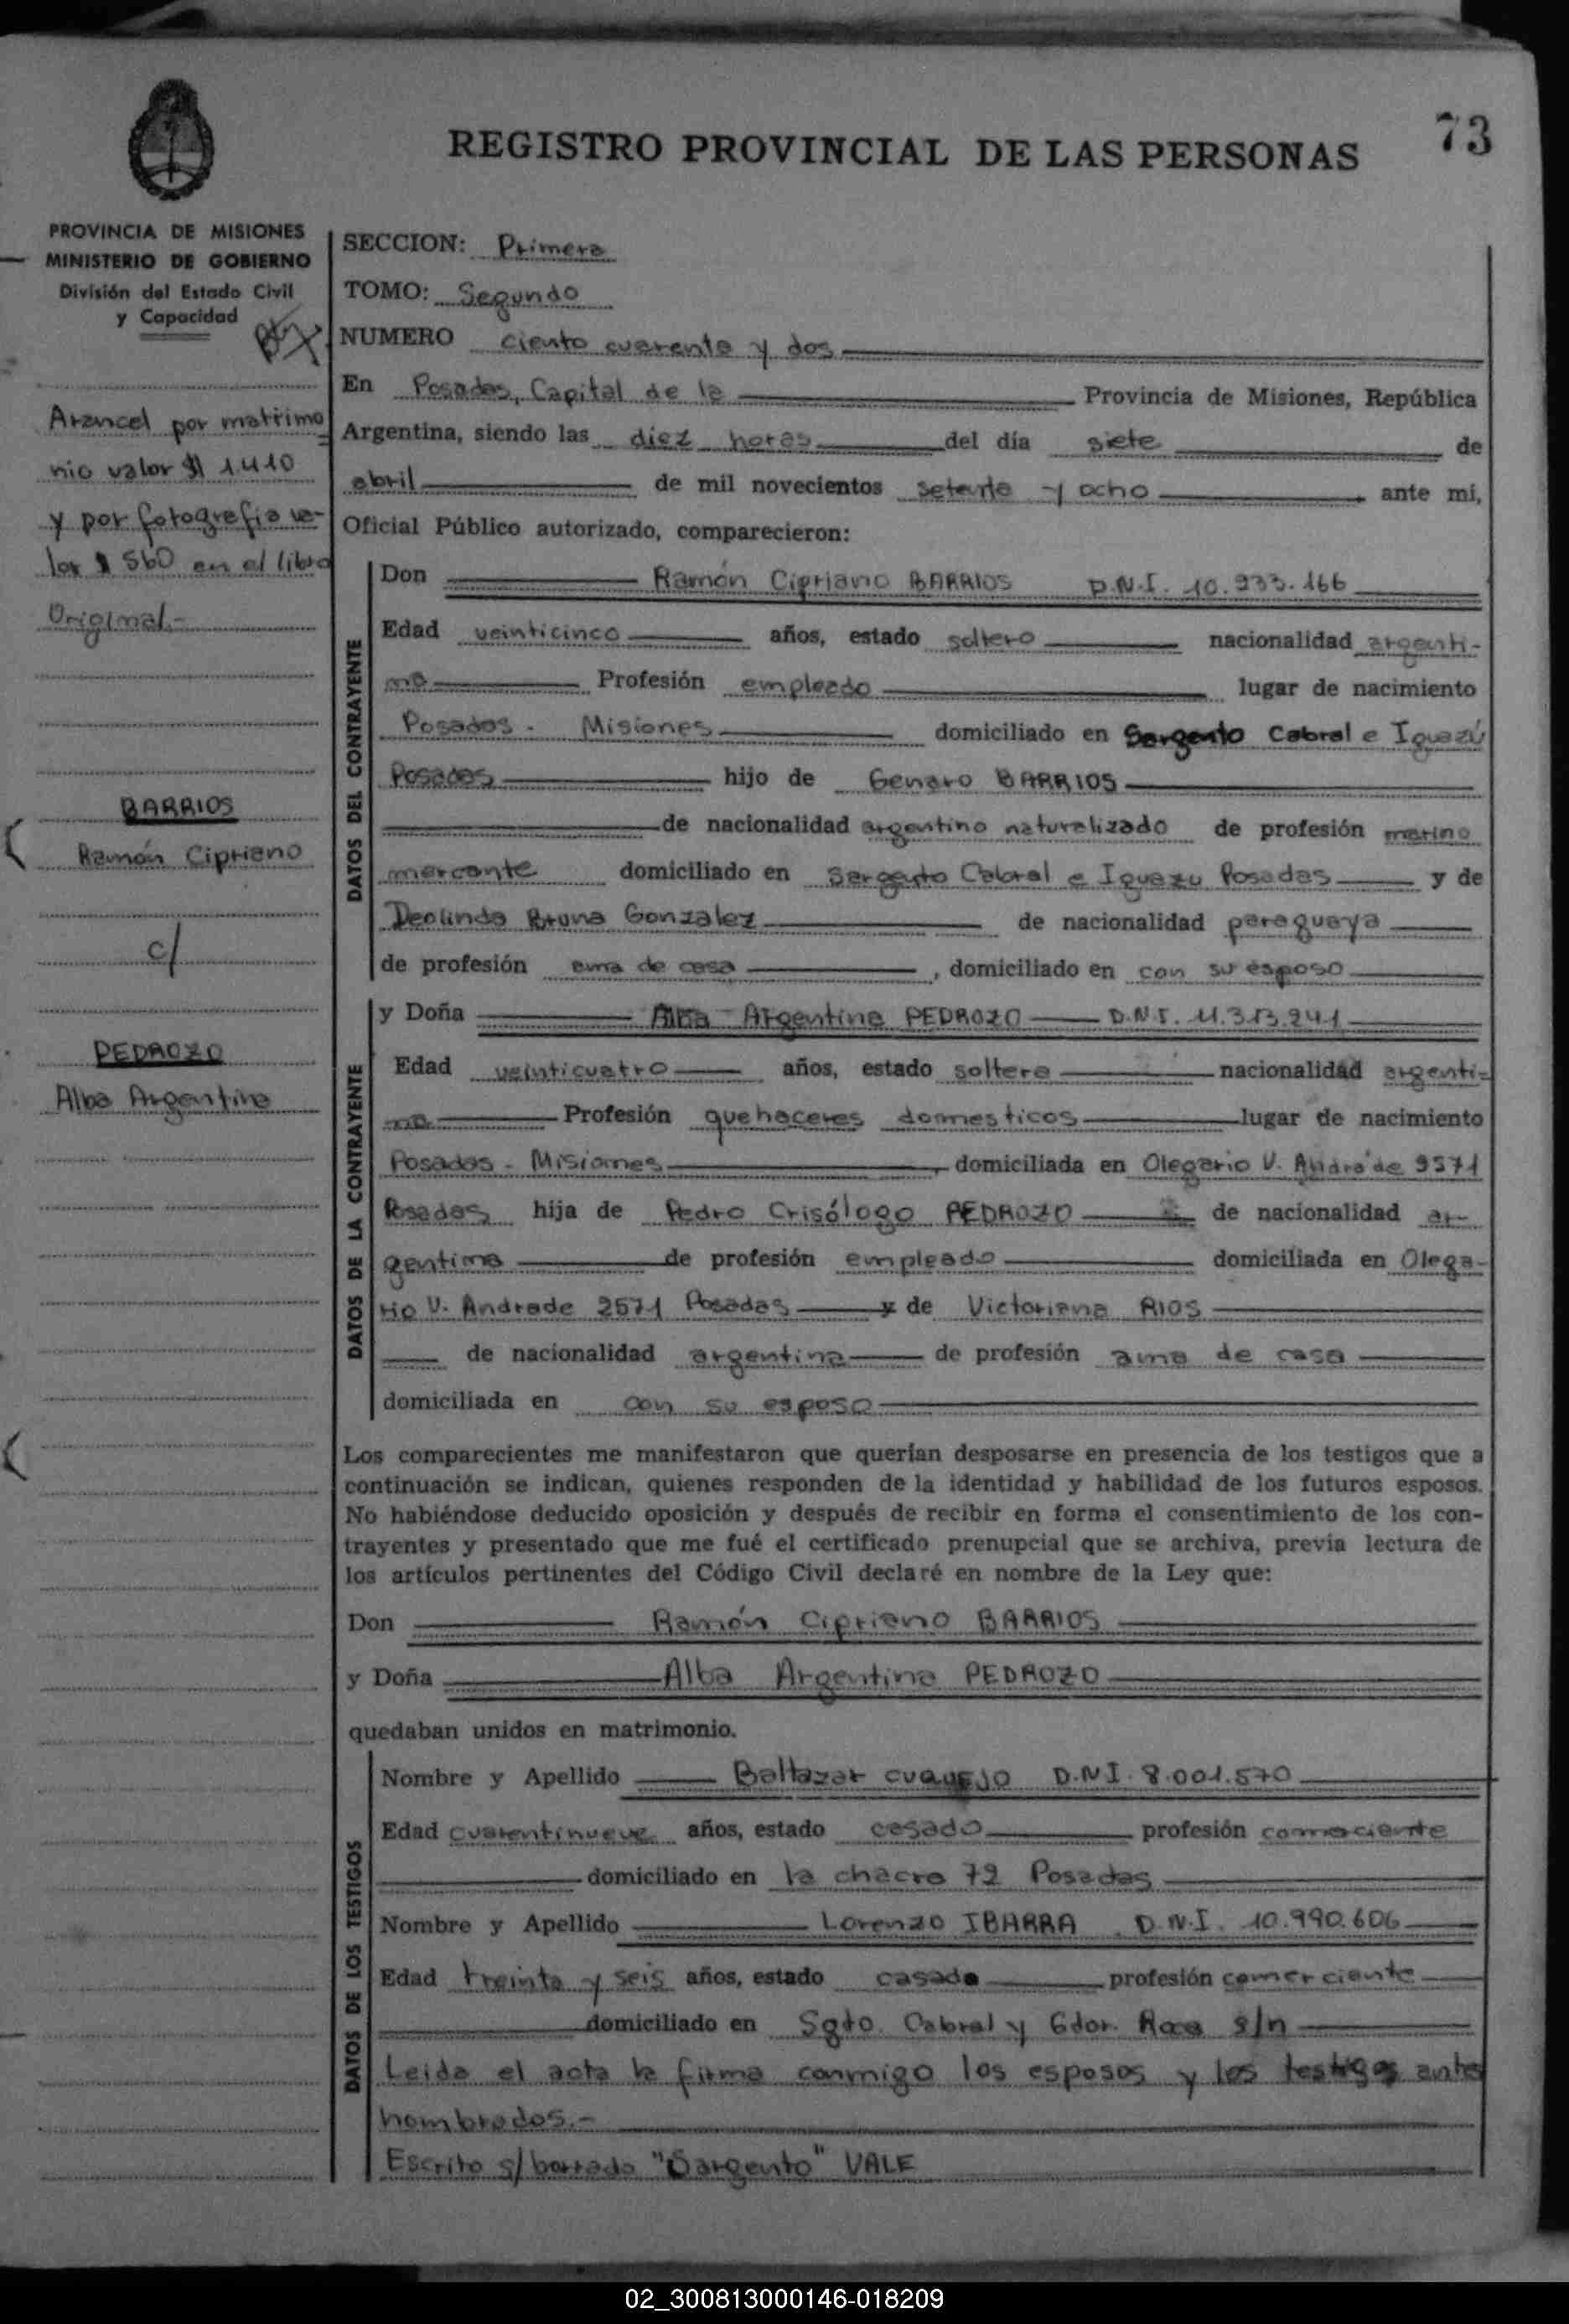 73
REGISTRO PROVINCIAL DE LAS PERSONAS
PROVINCIA DE MISIONES
MINISTERIO DE GOBIERNO
División del Estado Civil
y Capacidad
Arancel por matrimo
nio valor $ 1.410
y por fotografia va-
lor $ 560 en el libro
Original.-
BARRIOS
Ramón Cipriano
c/
PEDROZO
Alba Argentina
SECCION: Primera
TOMO: Segundo
NUMERO ciento cuarenta y dos
En Posadas, Capital de la Provincia de Misiones, República
Argentina, siendo las diez horas del día siete de
abril de mil novecientos setenta y ocho ante mí,
Oficial Público autorizado, comparecieron:
DATOS DEL CONTRAYENTE
Don Ramón Cipriano BARRIOS D.N.I. 10.233.166
Edad veinticinco años, estado soltero nacionalidad argenti-
no Profesión empleado lugar de nacimiento
Posadas - Misiones domiciliado en Sargento Cabral e Iguazú
Posadas hijo de Genaro BARRIOS
de nacionalidad argentino naturalizado de profesión marino
mercante domiciliado en Sargento Cabral e Iguazu Posadas y de
Deolinda Bruna Gonzalez de nacionalidad paraguaya
de profesión ama de casa, domiciliado en con su esposo
DATOS DE LA CONTRAYENTE
y Doña Alba Argentina PEDROZO D.N.I. 11.313.241
Edad veinticuatro años, estado soltera nacionalidad argenti-
na Profesión quehaceres domesticos lugar de nacimiento
Posadas - Misiones, domiciliada en Olegario V. Andrade 2571
Posadas hija de Pedro Crisólogo PEDROZO de nacionalidad ar-
gentina de profesión empleado domiciliada en Olega-
rio V. Andrade 2571 Posadas y de Victoriana RIOS
de nacionalidad argentina de profesión ama de casa
domiciliada en con su esposo
Los comparecientes me manifestaron que querían desposarse en presencia de los testigos que a
continuación se indican, quienes responden de la identidad y habilidad de los futuros esposos.
No habiéndose deducido oposición y después de recibir en forma el consentimiento de los con-
trayentes y presentado que me fué el certificado prenupcial que se archiva, previa lectura de
los artículos pertinentes del Código Civil declaré en nombre de la Ley que:
Don Ramón Cipriano BARRIOS
y Doña Alba Argentina PEDROZO
quedaban unidos en matrimonio.
DATOS DE LOS TESTIGOS
Nombre y Apellido Baltazar CUQUEJO D.N.I. 8.001.570
Edad cuarentinueve años, estado casado profesión comerciante
domiciliado en la chacra 72 Posadas
Nombre y Apellido Lorenzo IBARRA D.N.I. 10.990.606
Edad treinta y seis años, estado casado profesión comerciante
domiciliado en Sgto. Cabral y Gdor. Roca s/n
Leida el acta la firma conmigo los esposos y los testigos antes
nombrados.-
Escrito s/borrado "Sargento" VALE
02_300813000146-018209